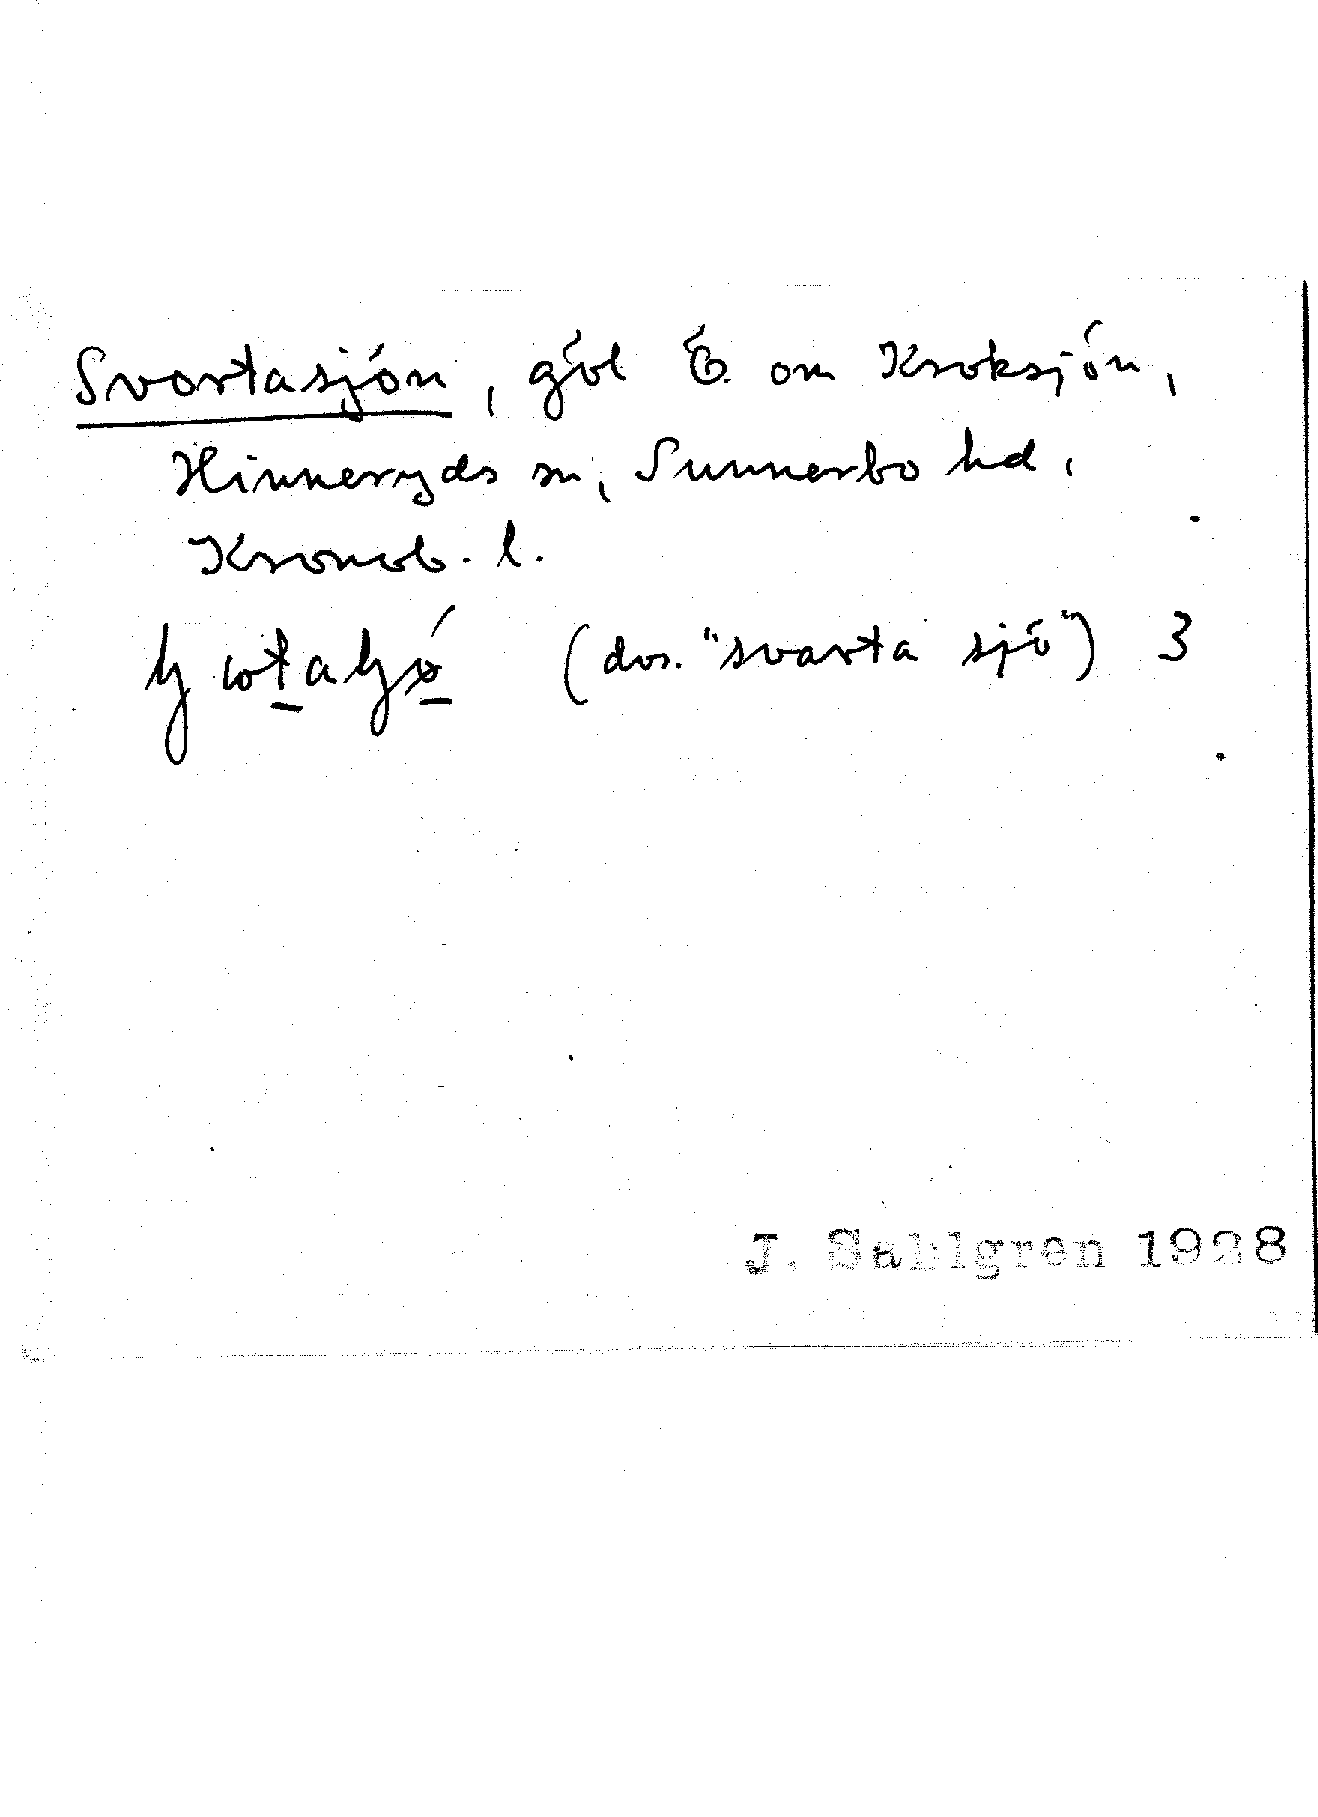 Svortasjön, göl Ö. om Kroksjön,
Hinneryds sn, Sunnerbo hd,
Kronob. l.
(dvs. "svarta sjö") 3
J. Sahlgren 1928